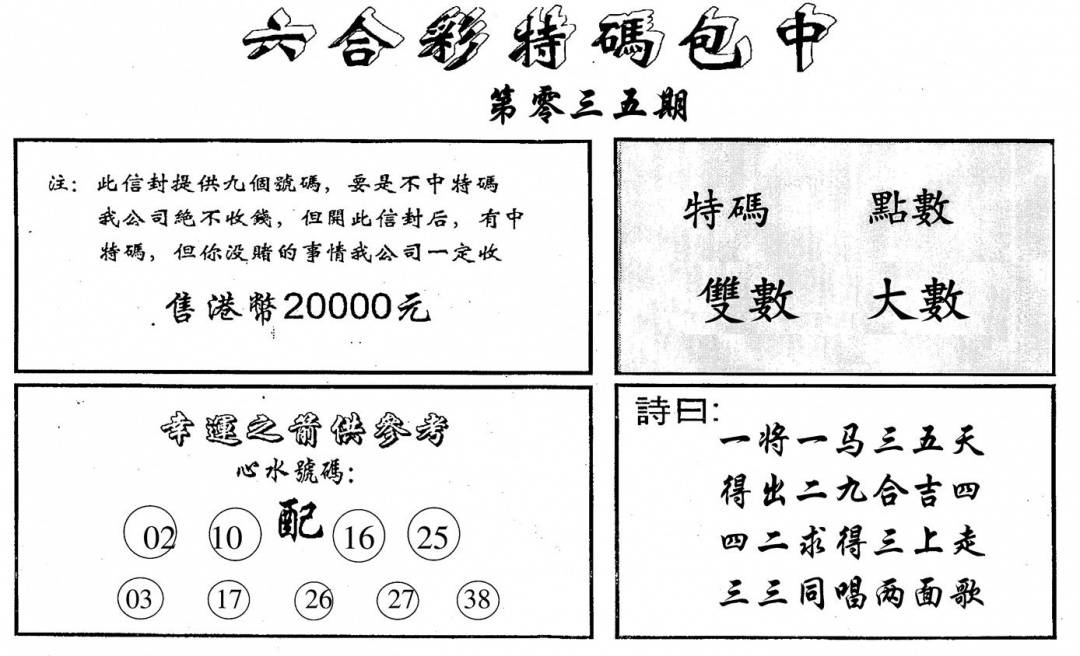 六合彩特碼包中
第零三五期
注：此信封提供九個號碼，要是不中特碼
我公司絕不收錢，但開此信封后，有中
特碼，但你没賭的事情我公司一定收
售港幣20000元
特碼 點數
雙數 大數
幸運之箭供參考
心水號碼：
02 10 配 16 25
03 17 26 27 38
詩曰：
一将一马三五天
得出二九合吉四
四二求得三上走
三三同唱两面歌